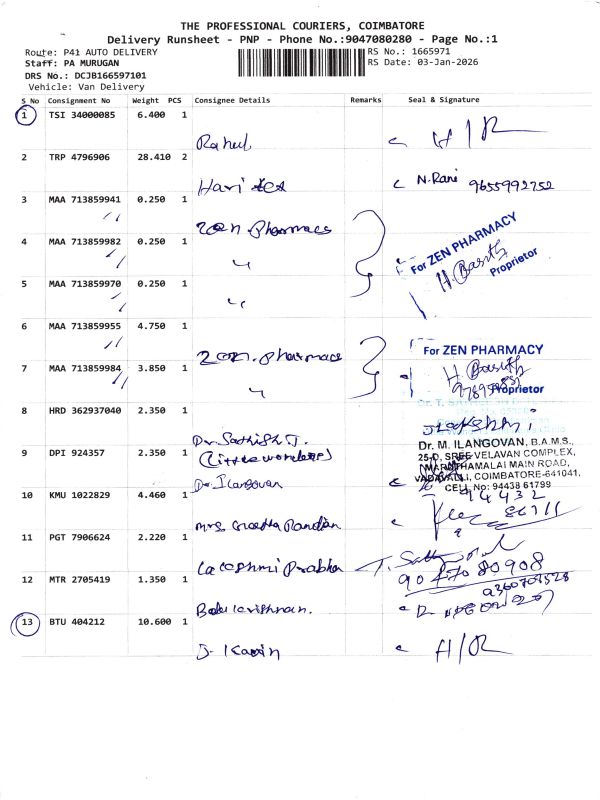 THE PROFESSIONAL COURIERS, COIMBATORE
Delivery Runsheet - PNP - Phone No.:9047080280 - Page No.:1
Route: P41 AUTO DELIVERY
RS No.: 1665971
Staff: PA MURUGAN
RS Date: 03-Jan-2026
DRS No.: DCJB166597101
Vehicle: Van Delivery
S No Consignment No Weight PCS Consignee Details Remarks Seal & Signature
1 TSI 34000085 6.400 1
Rahul H/R
2 TRP 4796906 28.410 2
Hari N.Rani 9655992752
3 MAA 713859941 0.250 1
Zen Pharmacy
4 MAA 713859982 0.250 1
For ZEN PHARMACY
Proprietor
5 MAA 713859970 0.250 1
6 MAA 713859955 4.750 1
Zen Pharmacy
For ZEN PHARMACY
7 MAA 713859984 3.850 1
Proprietor
8 HRD 362937040 2.350 1
Dr. Sathish T.
9 DPI 924357 2.350 1
Dr. M. ILANGOVAN, B.A.M.S.,
25-D, SREE VELAVAN COMPLEX,
MARUTHAMALAI MAIN ROAD,
VADAVALLI, COIMBATORE-641041,
CELL No: 94438 61799
Dr. Ilangovan
10 KMU 1022829 4.460 1
94432
86711
Mrs.
11 PGT 7906624 2.220 1
Lakshmi Prabha
9047080908
12 MTR 2705419 1.350 1
Balakrishnan.
13 BTU 404212 10.600 1
J. H/R